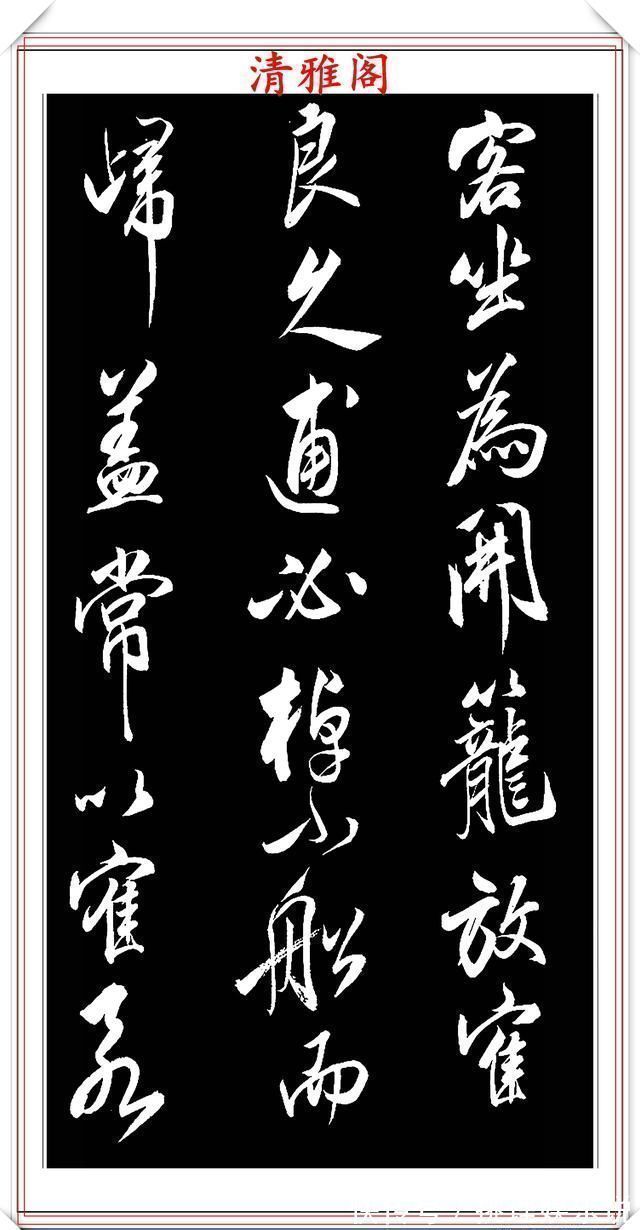 清雅阁
客坐為開籠放寉
良久逋必棹小船而
歸蓋常以寉為